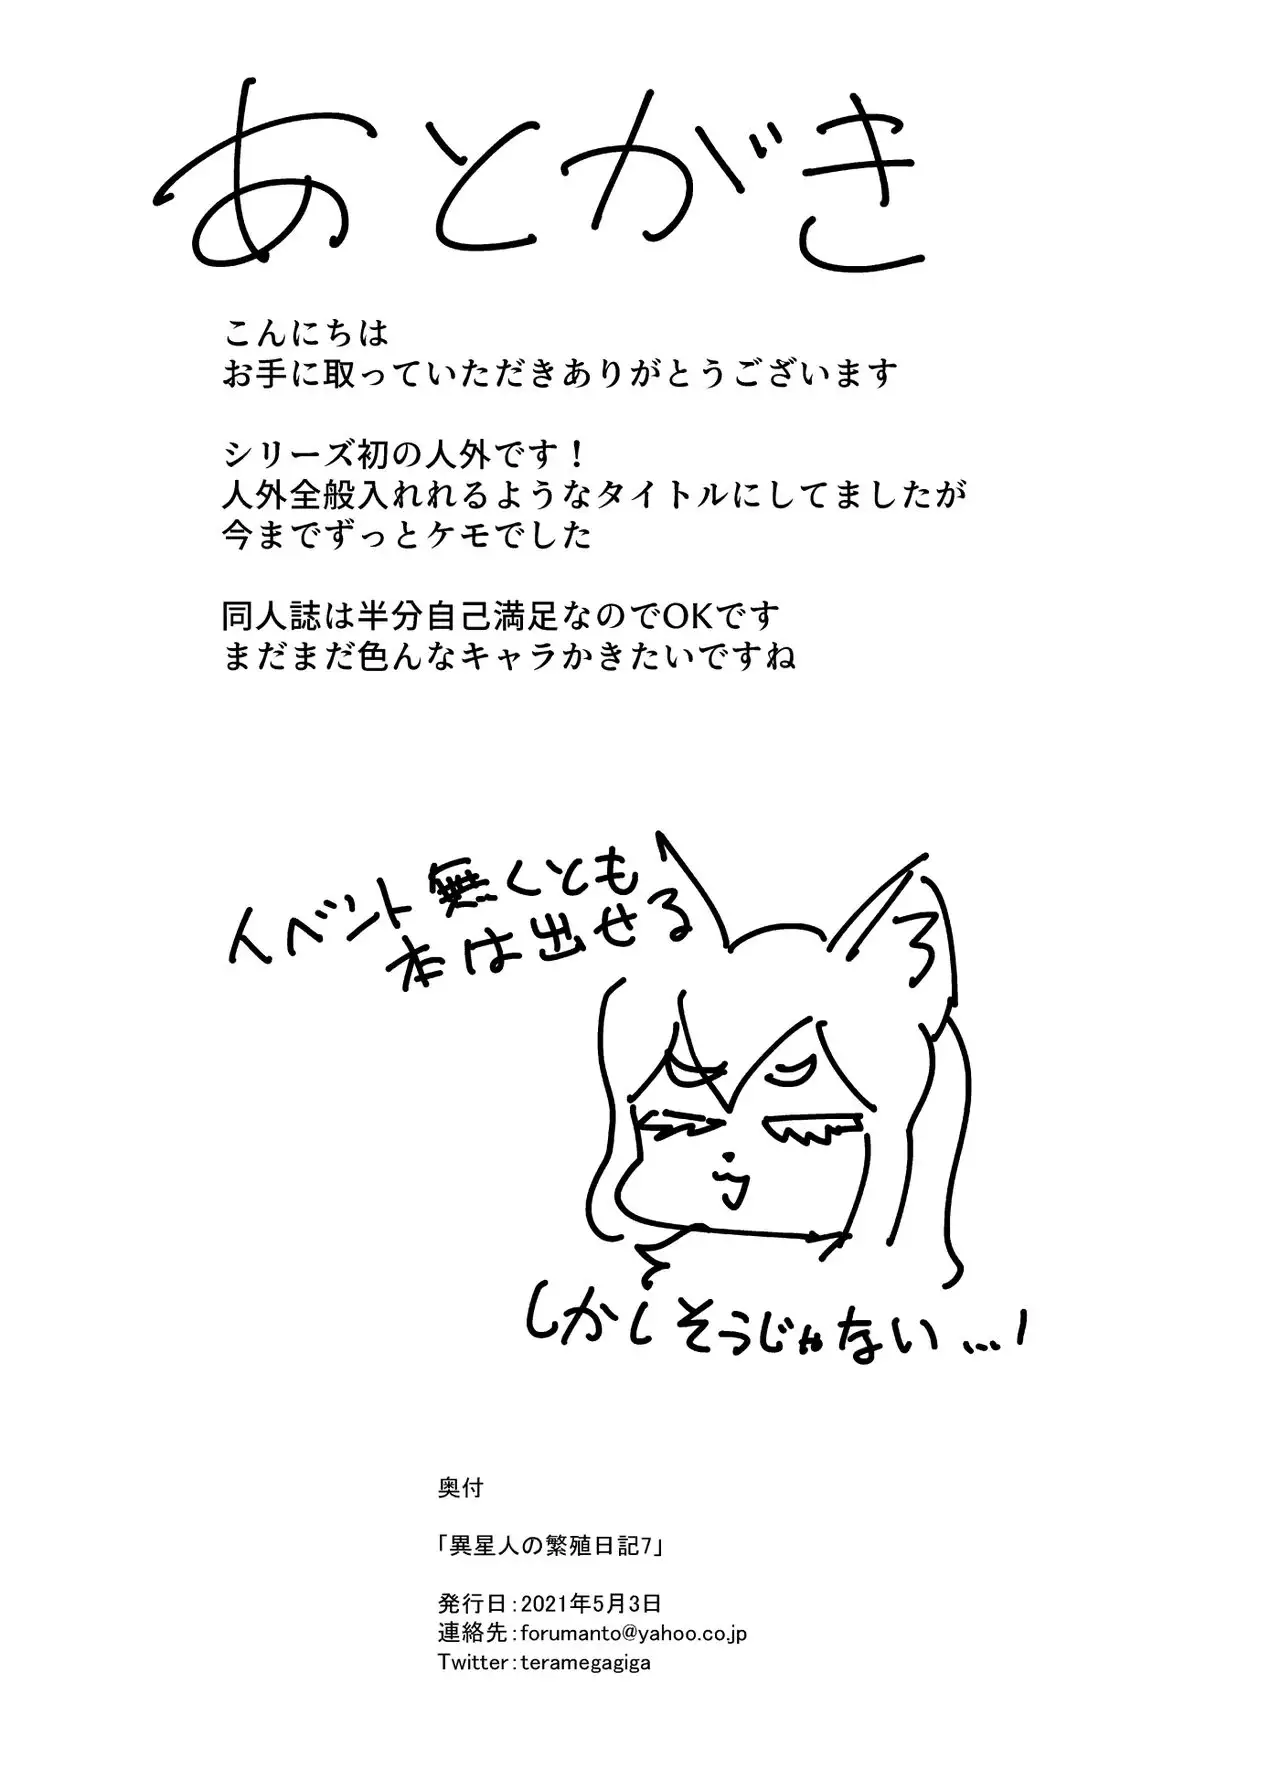 あとがき
こんにちは
お手に取っていただきありがとうございます
シリーズ初の人外です!
人外全般入れれるようなタイトルにしてましたが
今までずっとケモでした
同人誌は半分自己満足なのでOKです
まだまだ色んなキャラかきたいですね
イベント無くとも
本は出せる
しかしそうじゃない…!
奥付
「異星人の繁殖日記7」
発行日:2021年5月3日
連絡先:forumanto@yahoo.co.jp
Twitter:teramegagiga